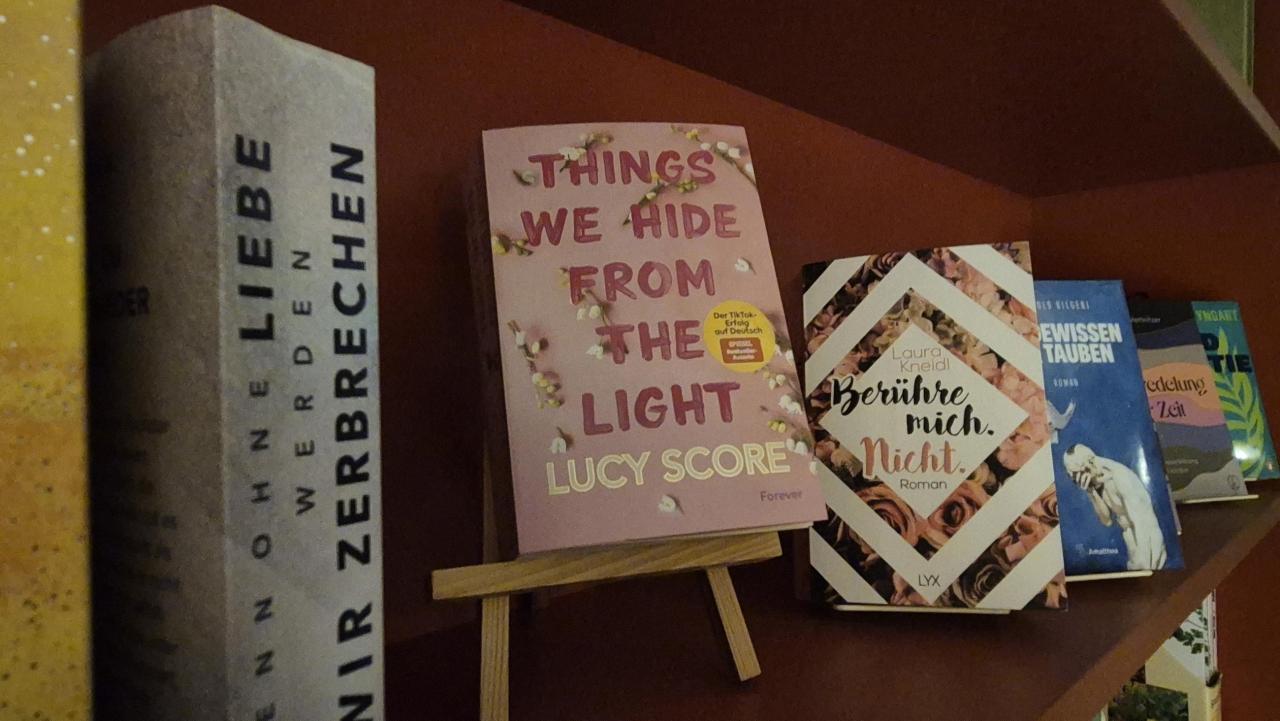 LIEBE
WERDEN
OHNE
ZERBRECHEN
THINGS
WE HIDE
FROM
THE
LIGHT
LUCY SCORE
Forever
Der TikTok-
Erfolg
auf Deutsch
SPIEGEL
Bestseller-
Autorin
Laura
Kneidl
Berühre
mich.
Nicht.
Roman
LYX
EWISSEN
TAUBEN
ROMAN
Amalthea
Zeit